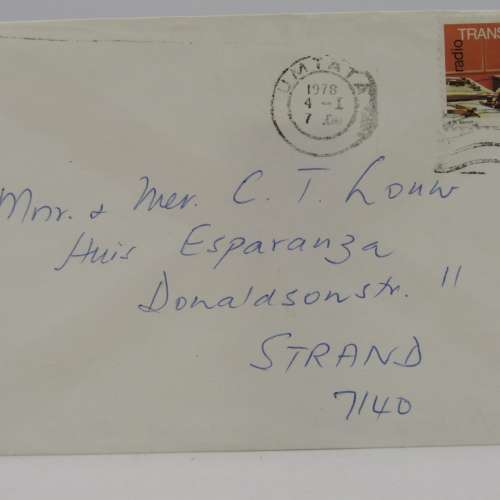 radio
TRANS
UMTATA
1978
4 - I
7
Mnr. & Mev. C. T. Louw
Huis Esparanza
Donaldsonstr. 11
STRAND
7140